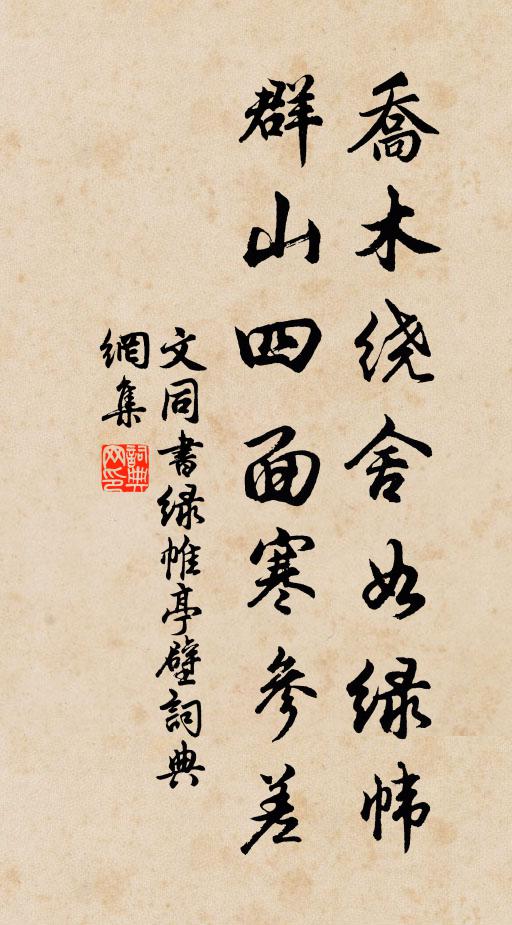 喬木绕舍如绿帏
群山四面寒參差
文同書緑帷亭壁詞典
網集
詞典网印